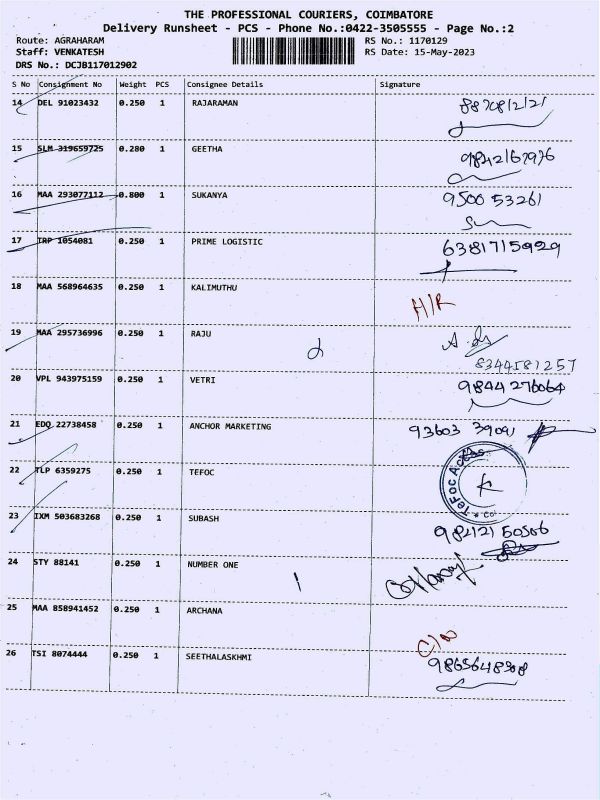 THE PROFESSIONAL COURIERS, COIMBATORE
Delivery Runsheet - PCS - Phone No.:0422-3505555 - Page No.:2
Route: AGRAHARAM RS No.: 1170129
Staff: VENKATESH RS Date: 15-May-2023
DRS No.: DCJB117012902
S No Consignment No Weight PCS Consignee Details Signature
14 DEL 91023432 0.250 1 RAJARAMAN
15 SLM 319659725 0.280 1 GEETHA 9842167976
16 MAA 293077112 0.800 1 SUKANYA 95005 3261
17 TRP 1054081 0.250 1 PRIME LOGISTIC 6381715929
18 MAA 568964635 0.250 1 KALIMUTHU H/R
19 MAA 295736996 0.250 1 RAJU
8344581257
20 VPL 943975159 0.250 1 VETRI 9844276064
21 EDQ 22738458 0.250 1 ANCHOR MARKETING 93603 39091
22 TLP 6359275 0.250 1 TEFOC
23 IXM 503683268 0.250 1 SUBASH 984121 50506
24 STY 88141 0.250 1 NUMBER ONE
25 MAA 858941452 0.250 1 ARCHANA
26 TSI 8074444 0.250 1 SEETHALASKHMI 9865648308